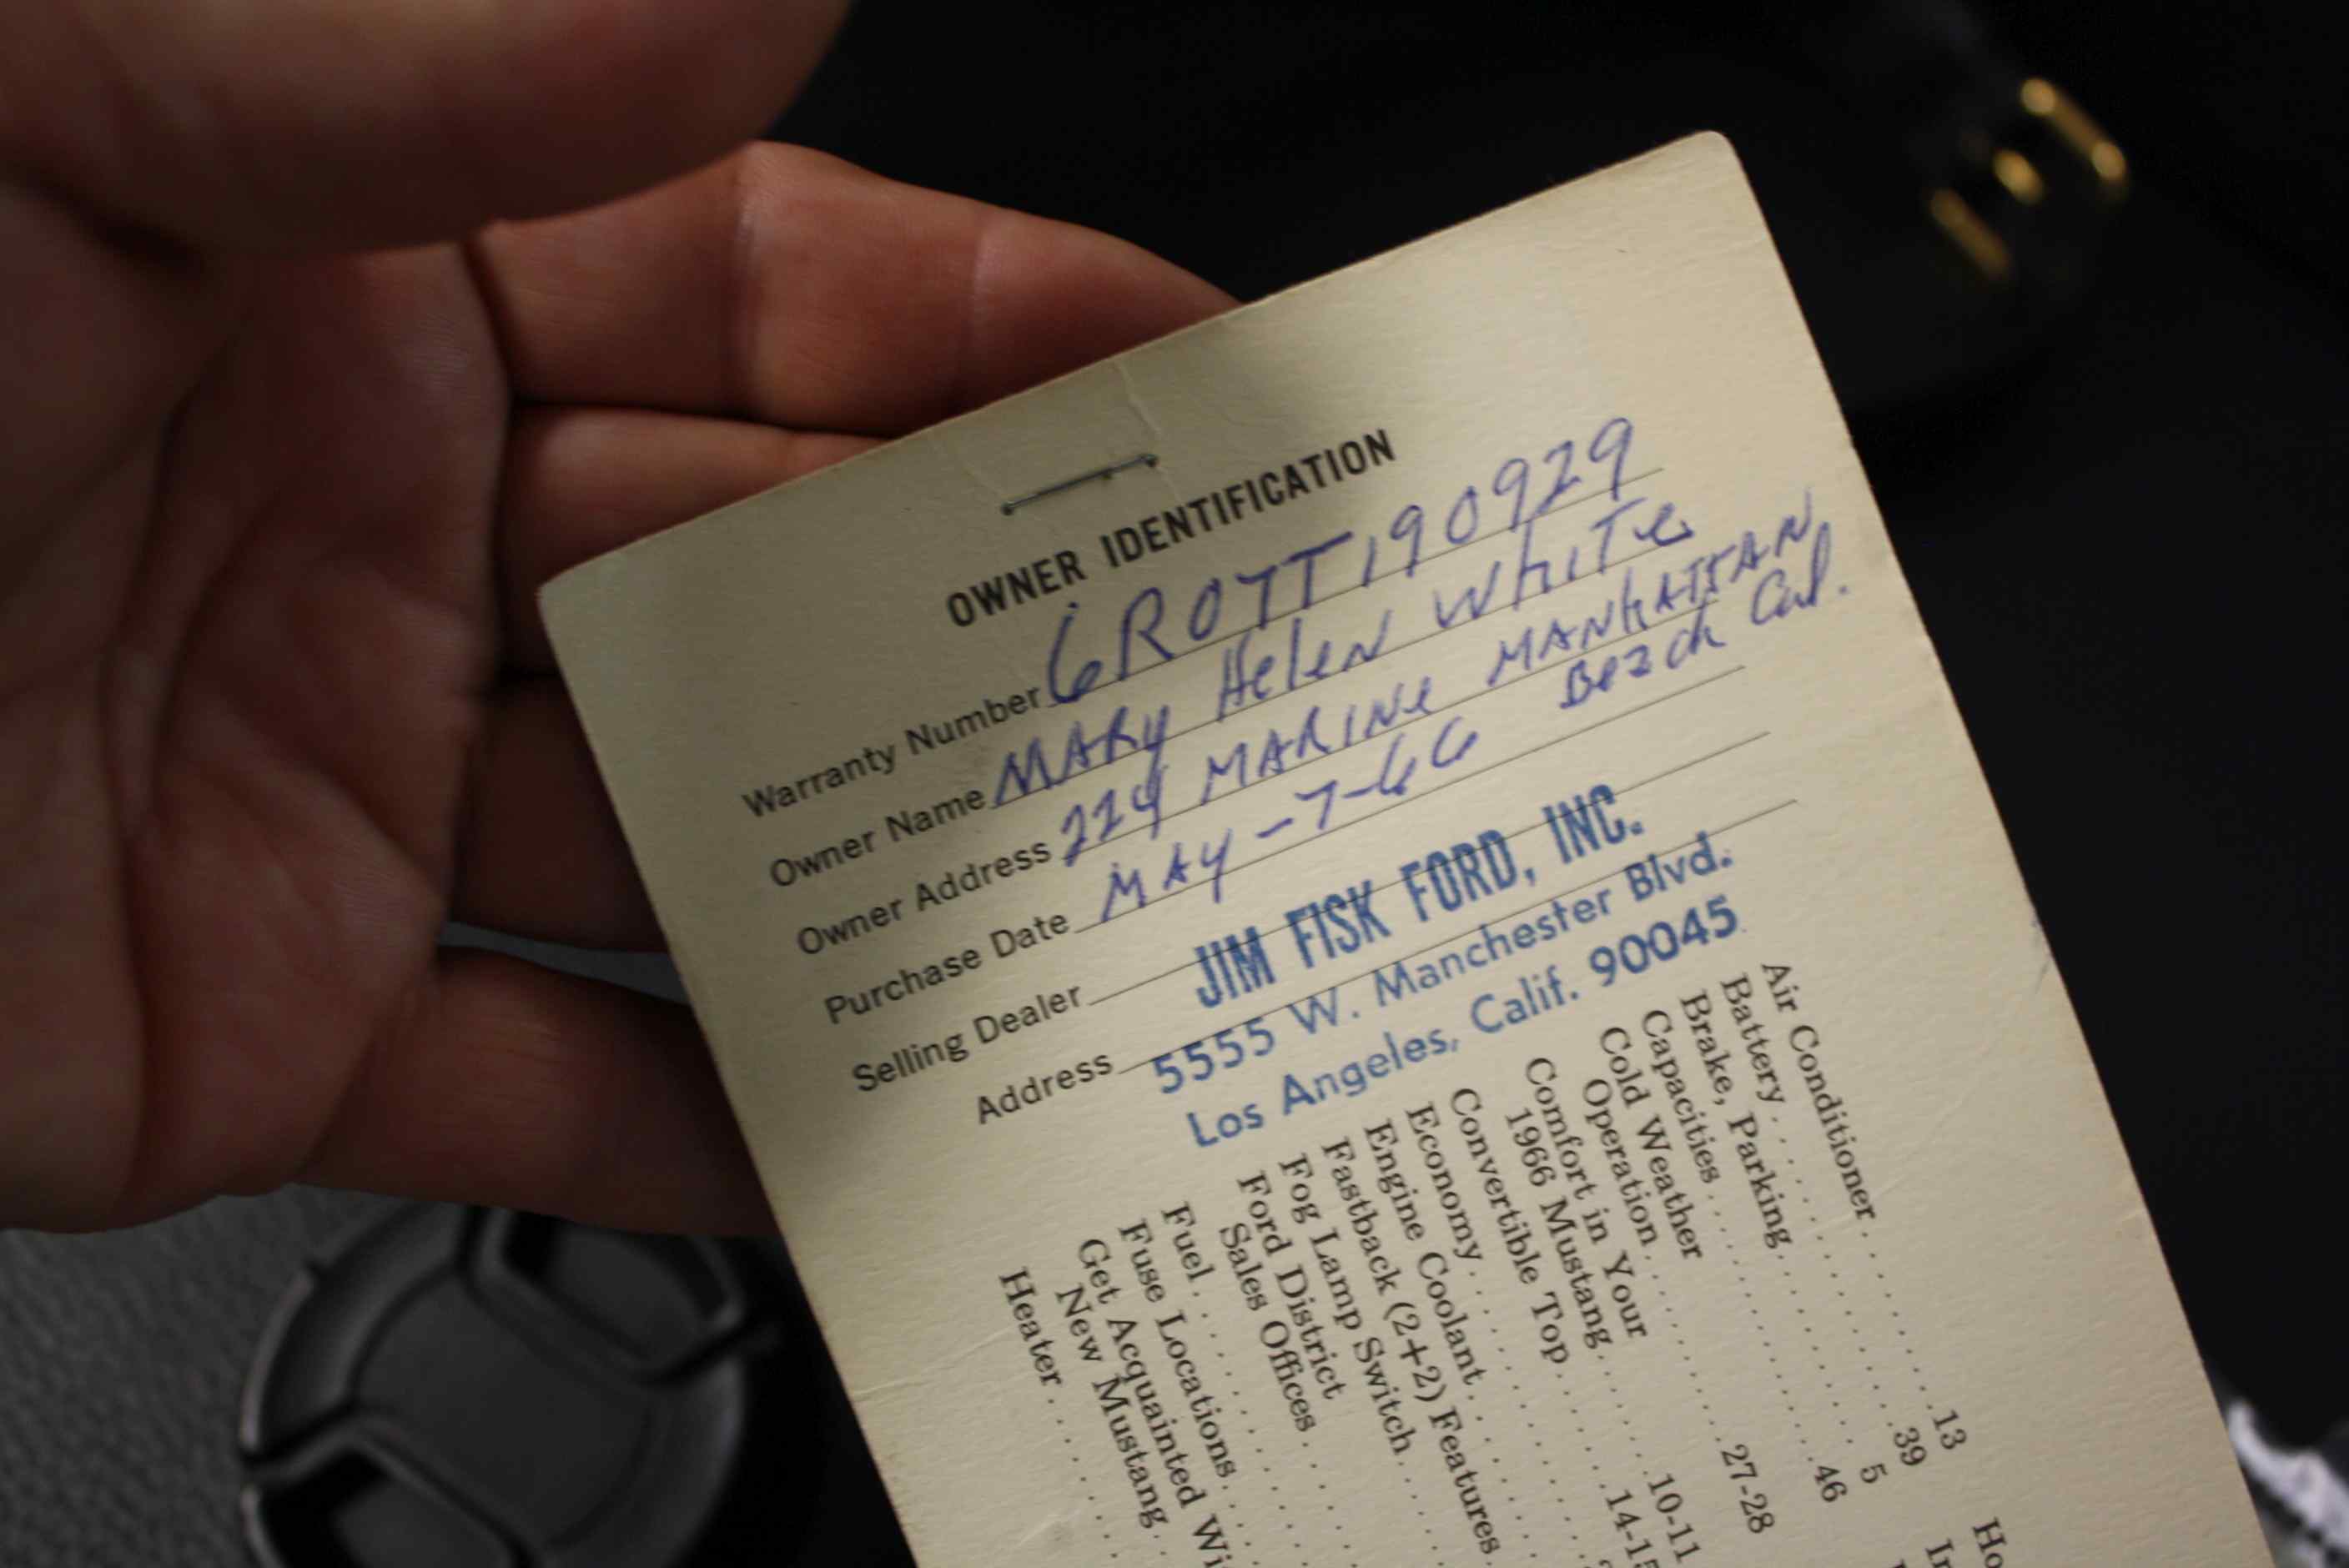 OWNER IDENTIFICATION
Warranty Number 6R07T190929
Owner Name MARY Helen WHITe
Owner Address 224 MARINe MANhATTAN
Beach Cal.
Purchase Date MAY-7-66
Selling Dealer JIM FISK FORD, INC.
Address 5555 W. Manchester Blvd.
Los Angeles, Calif. 90045
Air Conditioner . . . . . . . . . . 13
Battery . . . . . . . . . . 39
Brake, Parking . . . . . . . . . . 5
Capacities . . . . . . . . . . 46
Cold Weather
Operation . . . . . . . . . . 27-28
Comfort in Your
1966 Mustang . . . . . . . . . . 10-11
Convertible Top . . . . . . . . . . 14-15
Economy . . . . . . . . . .
Engine Coolant . . . . . . . . . .
Fastback (2+2) Features . .
Fog Lamp Switch . . . . .
Ford District
Sales Offices . . . . .
Fuel . . . . . . . . . .
Fuse Locations . . . . .
Get Acquainted Wi
New Mustang . .
Heater . . . . .